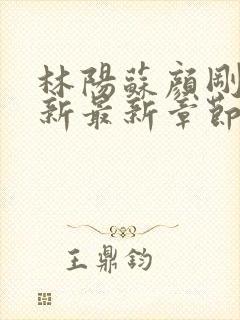 林陽蘇顏剛
新最新章節
王鼎鈞